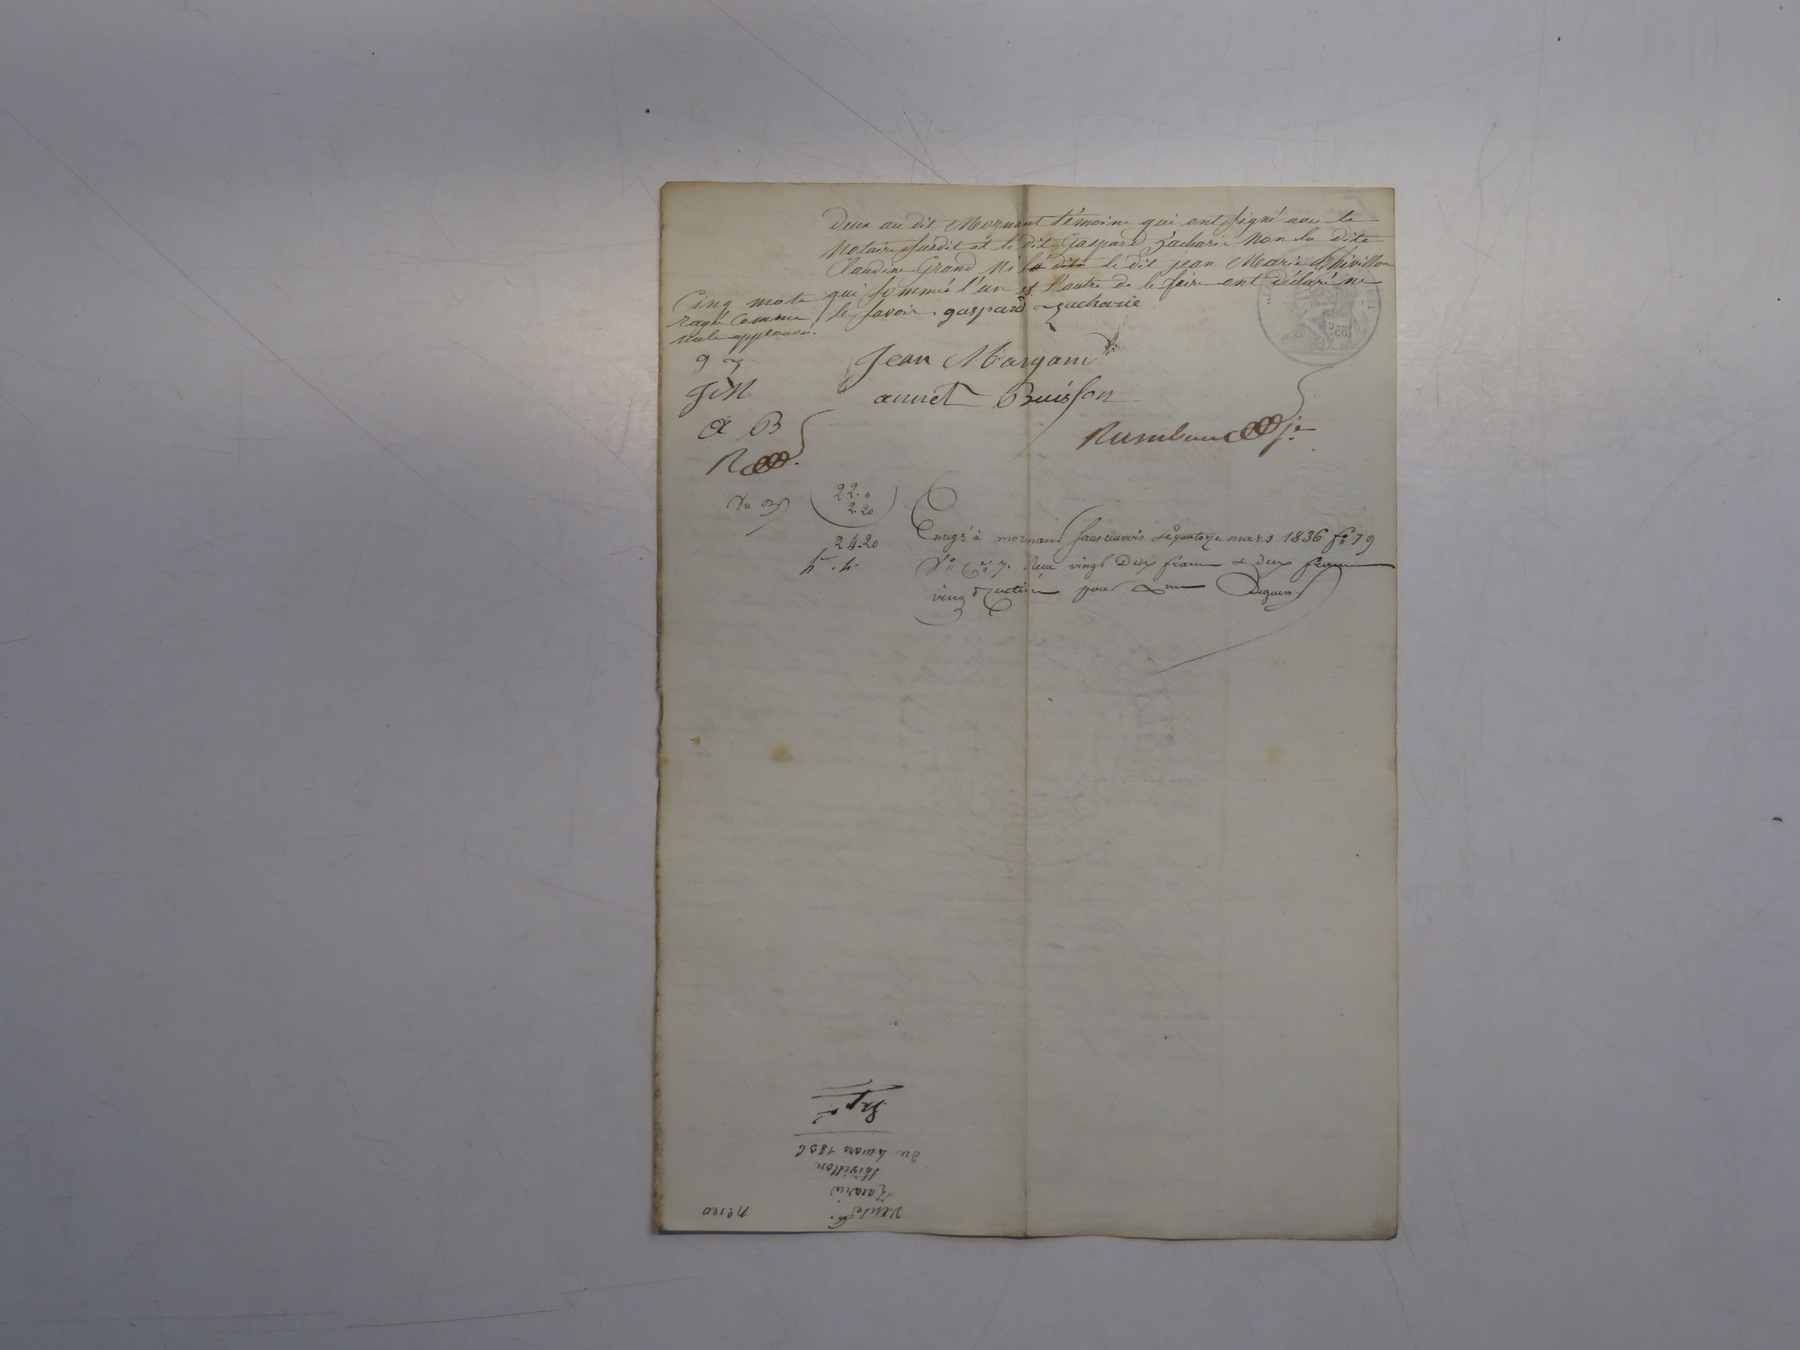 deux au dit Mornant témoins qui ont signé avec le
Notaire susdit et le dit Gaspard Zacharie Non la dite
Claudine Grand Ni la dite le dit Jean Marie Thivillon
qui sommé l'un et l'autre de le faire ont déclaré ne
le savoir. gaspard zacharie
Cinq mots
rayé comme
nuls approuvé.
g z
J M
a B
R
Jean Margand
annet Buisson
Rambau je
22. "
2.20
24.20
Enregé à mornant sans renvois le quatorze mars 1836 fo 79
Vo Ces 7. Reçu vingt deux francs et deux francs
vingt centimes pour
nº 120
Vente
Zacarie
thivillon
du 4 mars 1836
Expé